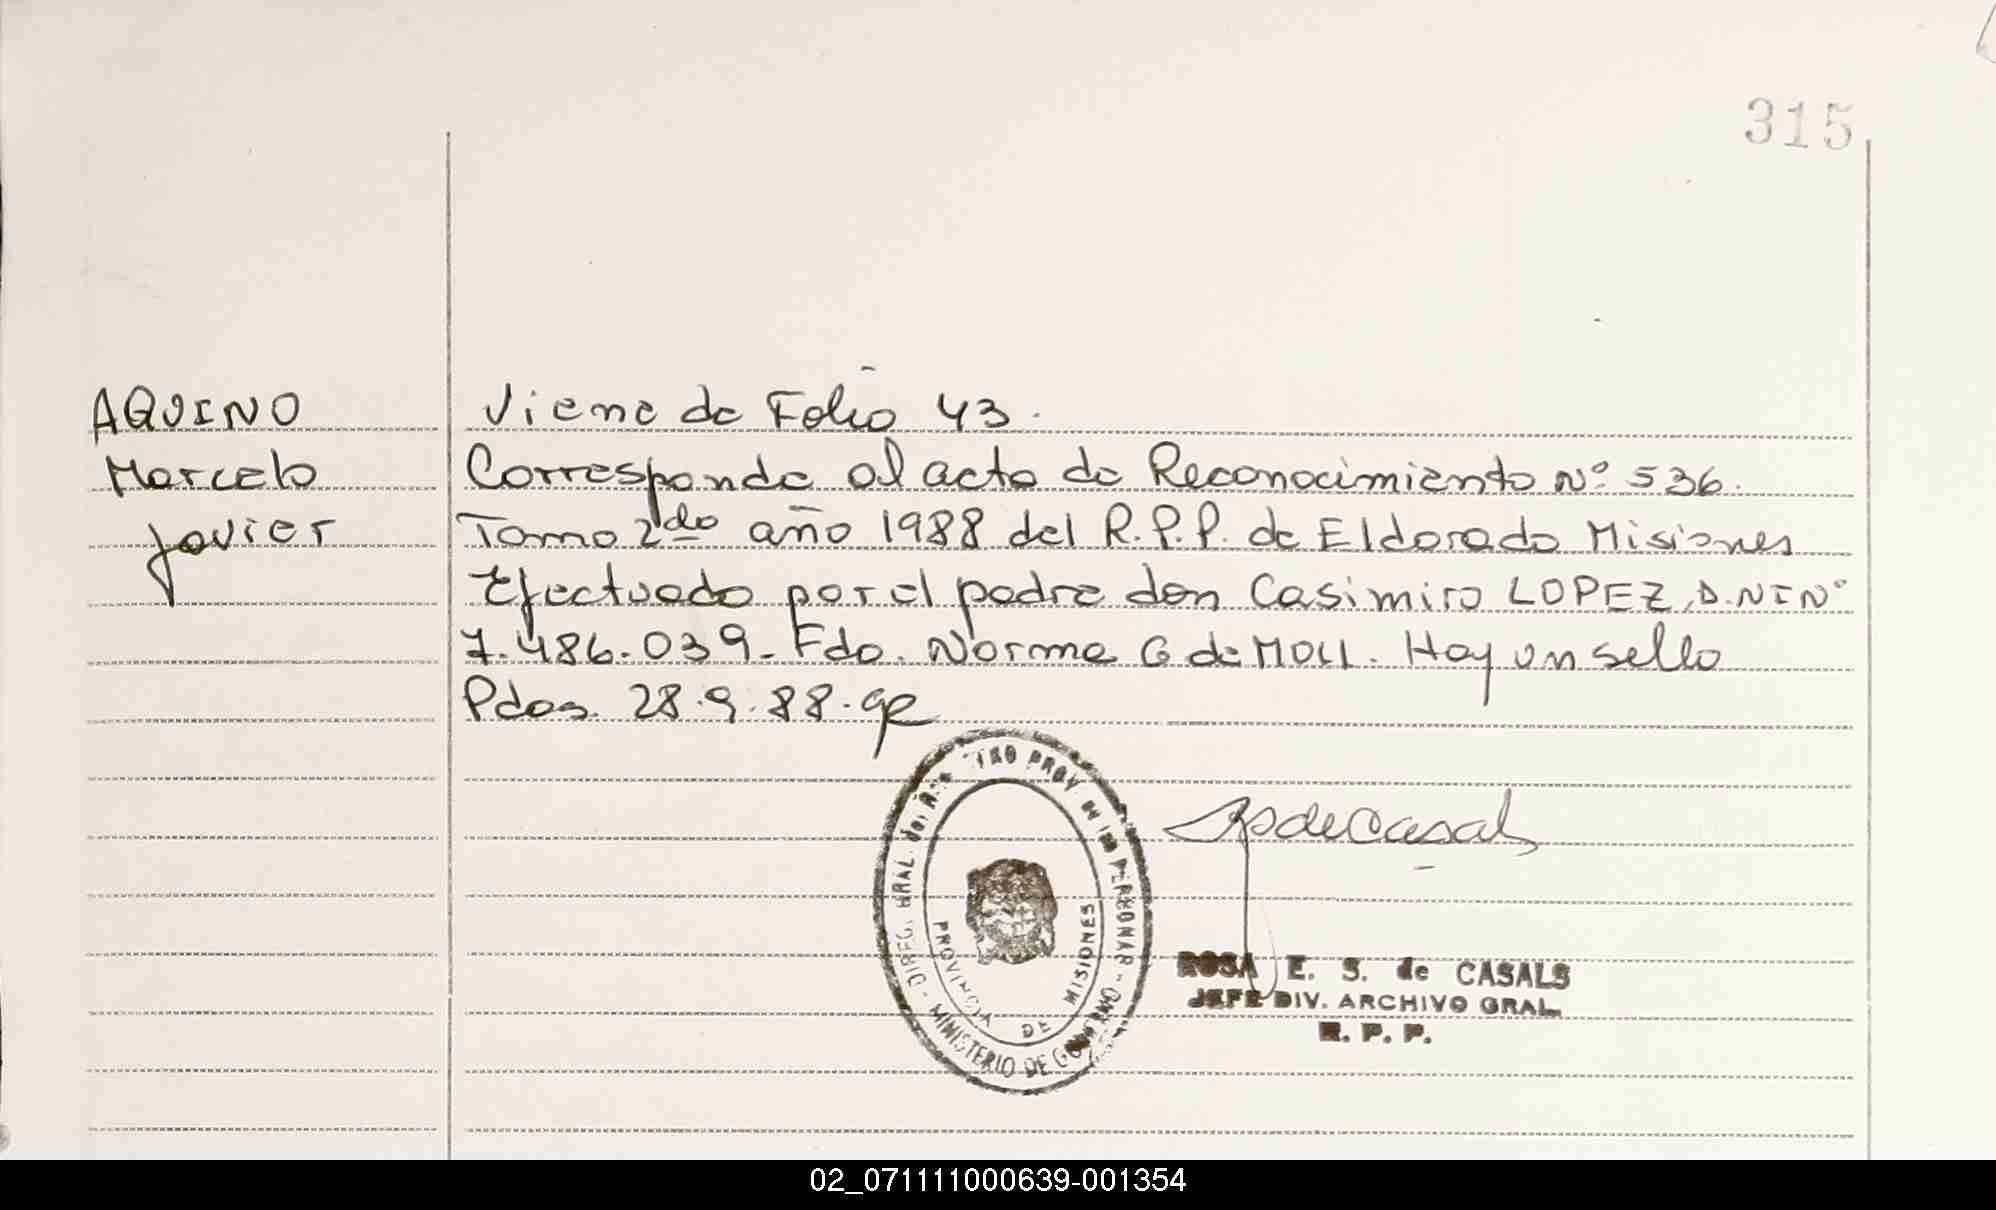 315
AQUINO
Marcelo
Javier
Viene de Folio 43.
Corresponde al acta de Reconocimiento Nº 536.
Tomo 2do año 1988 del R.P.P. de Eldorado Misiones
Efectuado por el padre don Casimiro LOPEZ, D.N.I Nº
7.486.039- Fdo. Norma G de MOLL. Hay un sello
Pdas. 28.9.88.
DIREC. GRAL. del PROV de las PERSONAS - MINISTERIO DE GOBIERNO
PROVINCIA DE MISIONES
de Casals
ROSA E. S. de CASALS
JEFE DIV. ARCHIVO GRAL.
R. P. P.
02_071111000639-001354